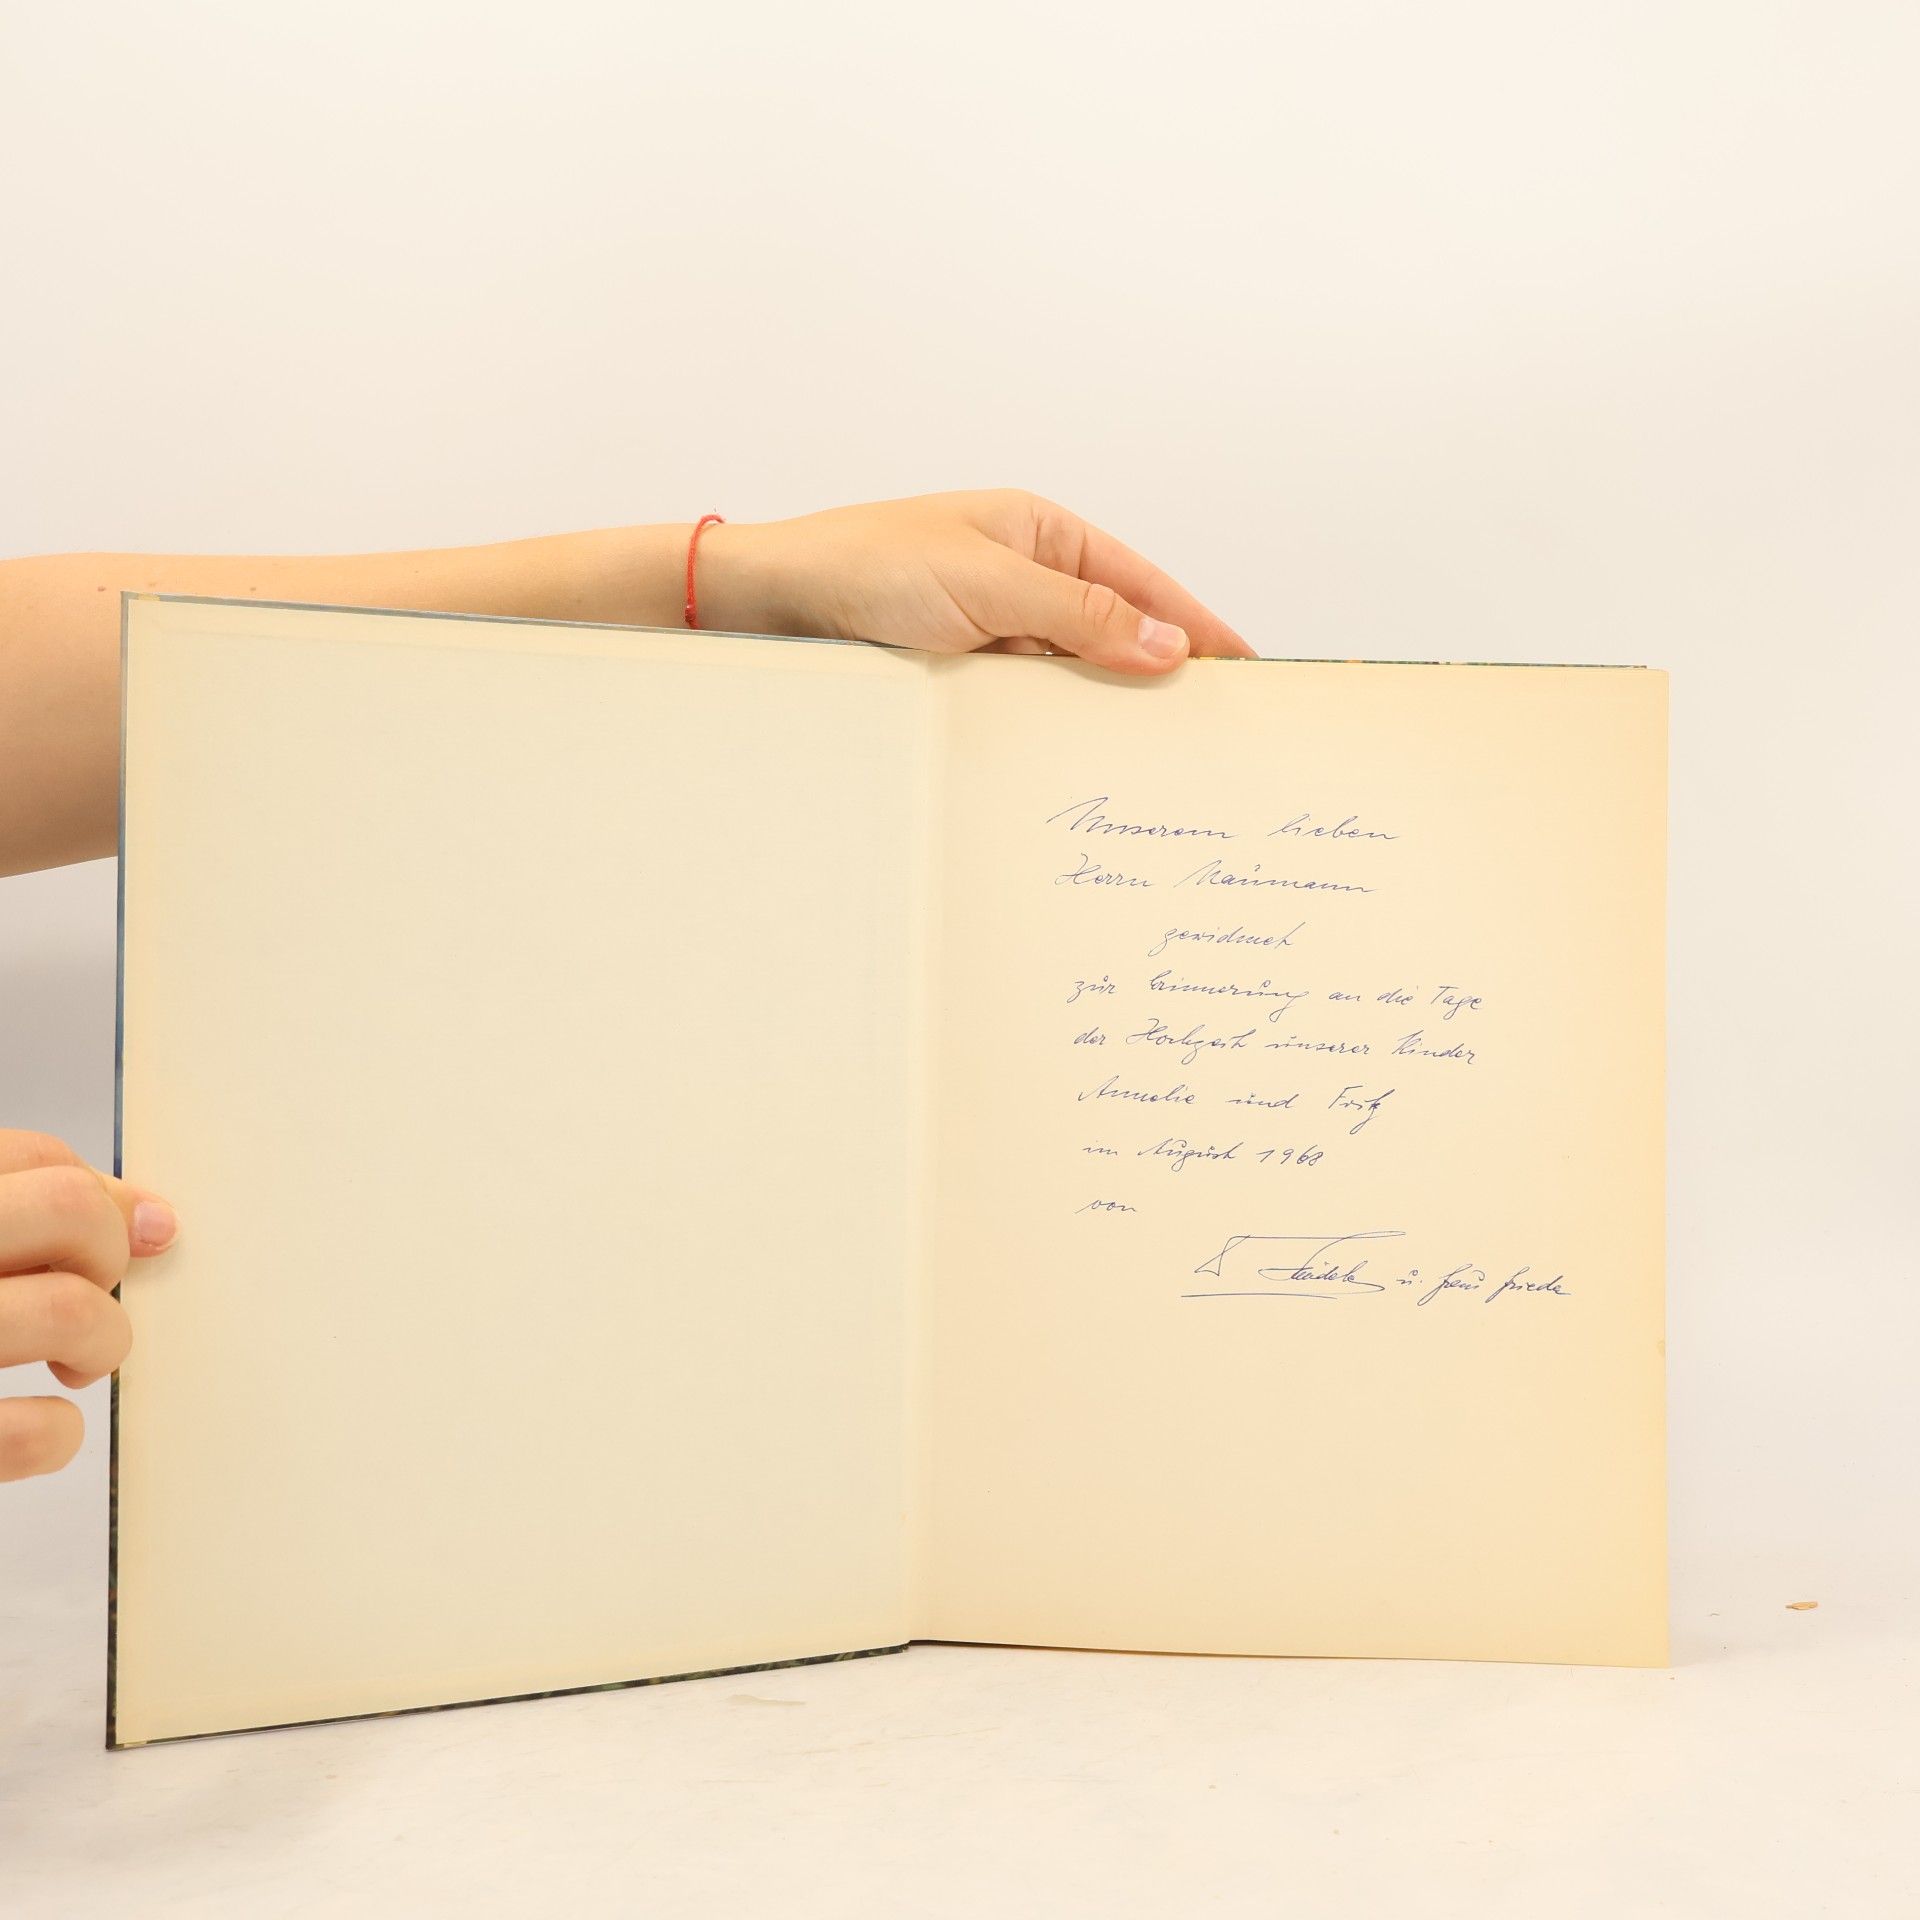 Unserem lieben
Herrn Naumann
gewidmet
zur Erinnerung an die Tage
der Hochzeit unserer Kinder
Annelie und Fritz
im August 1968
von
u. Frau Frieda